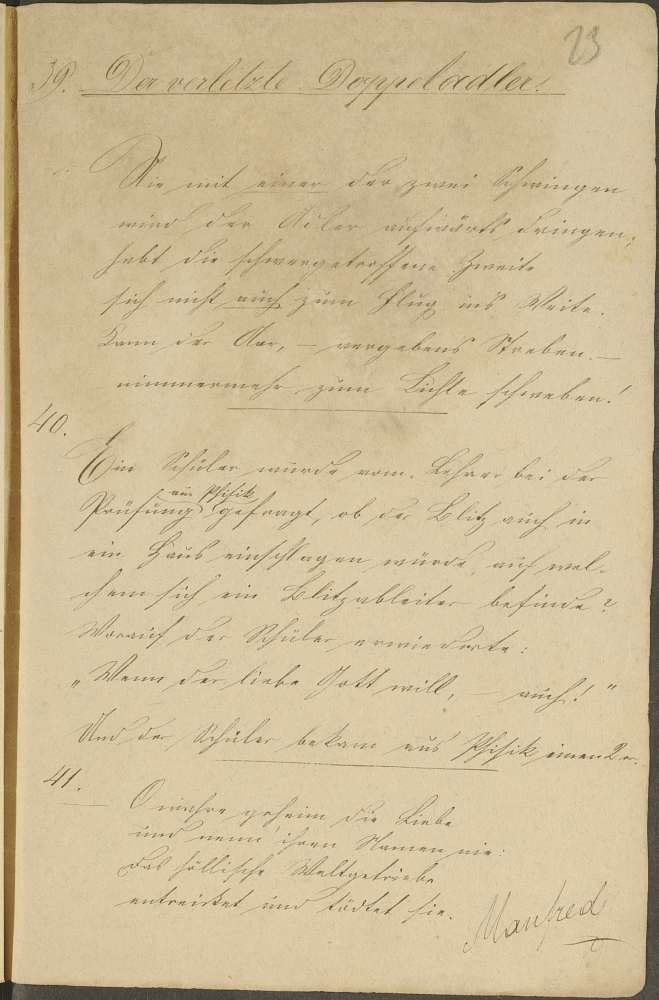 23
39. Der verletzte Doppeladler.
Nie mit einer der zwei Schwingen
wird der Adler aufwärts dringen;
hebt die schwergetroffene Zweite
sich nicht auch zum Flug ins Weite.
Kann der Aar, — vergebens Streben —
nimmermehr zum Lichte schweben!
40.
Ein Schüler wurde vom Lehrer bei der
aus Phisik
Prüfung gefragt, ob der Blitz auch in
ein Haus einschlagen würde, auf wel-
chem sich ein Blitzableiter befinde?
Worauf der Schüler erwiederte:
„Wenn der liebe Gott will, — auch!"
Und der Schüler bekam aus Phisik einen 2er.
41.
O wahre geheim die Liebe
und nenn' ihren Namen nie:
Das höllische Weltgetriebe
entreißet und tödtet sie.
Manfred